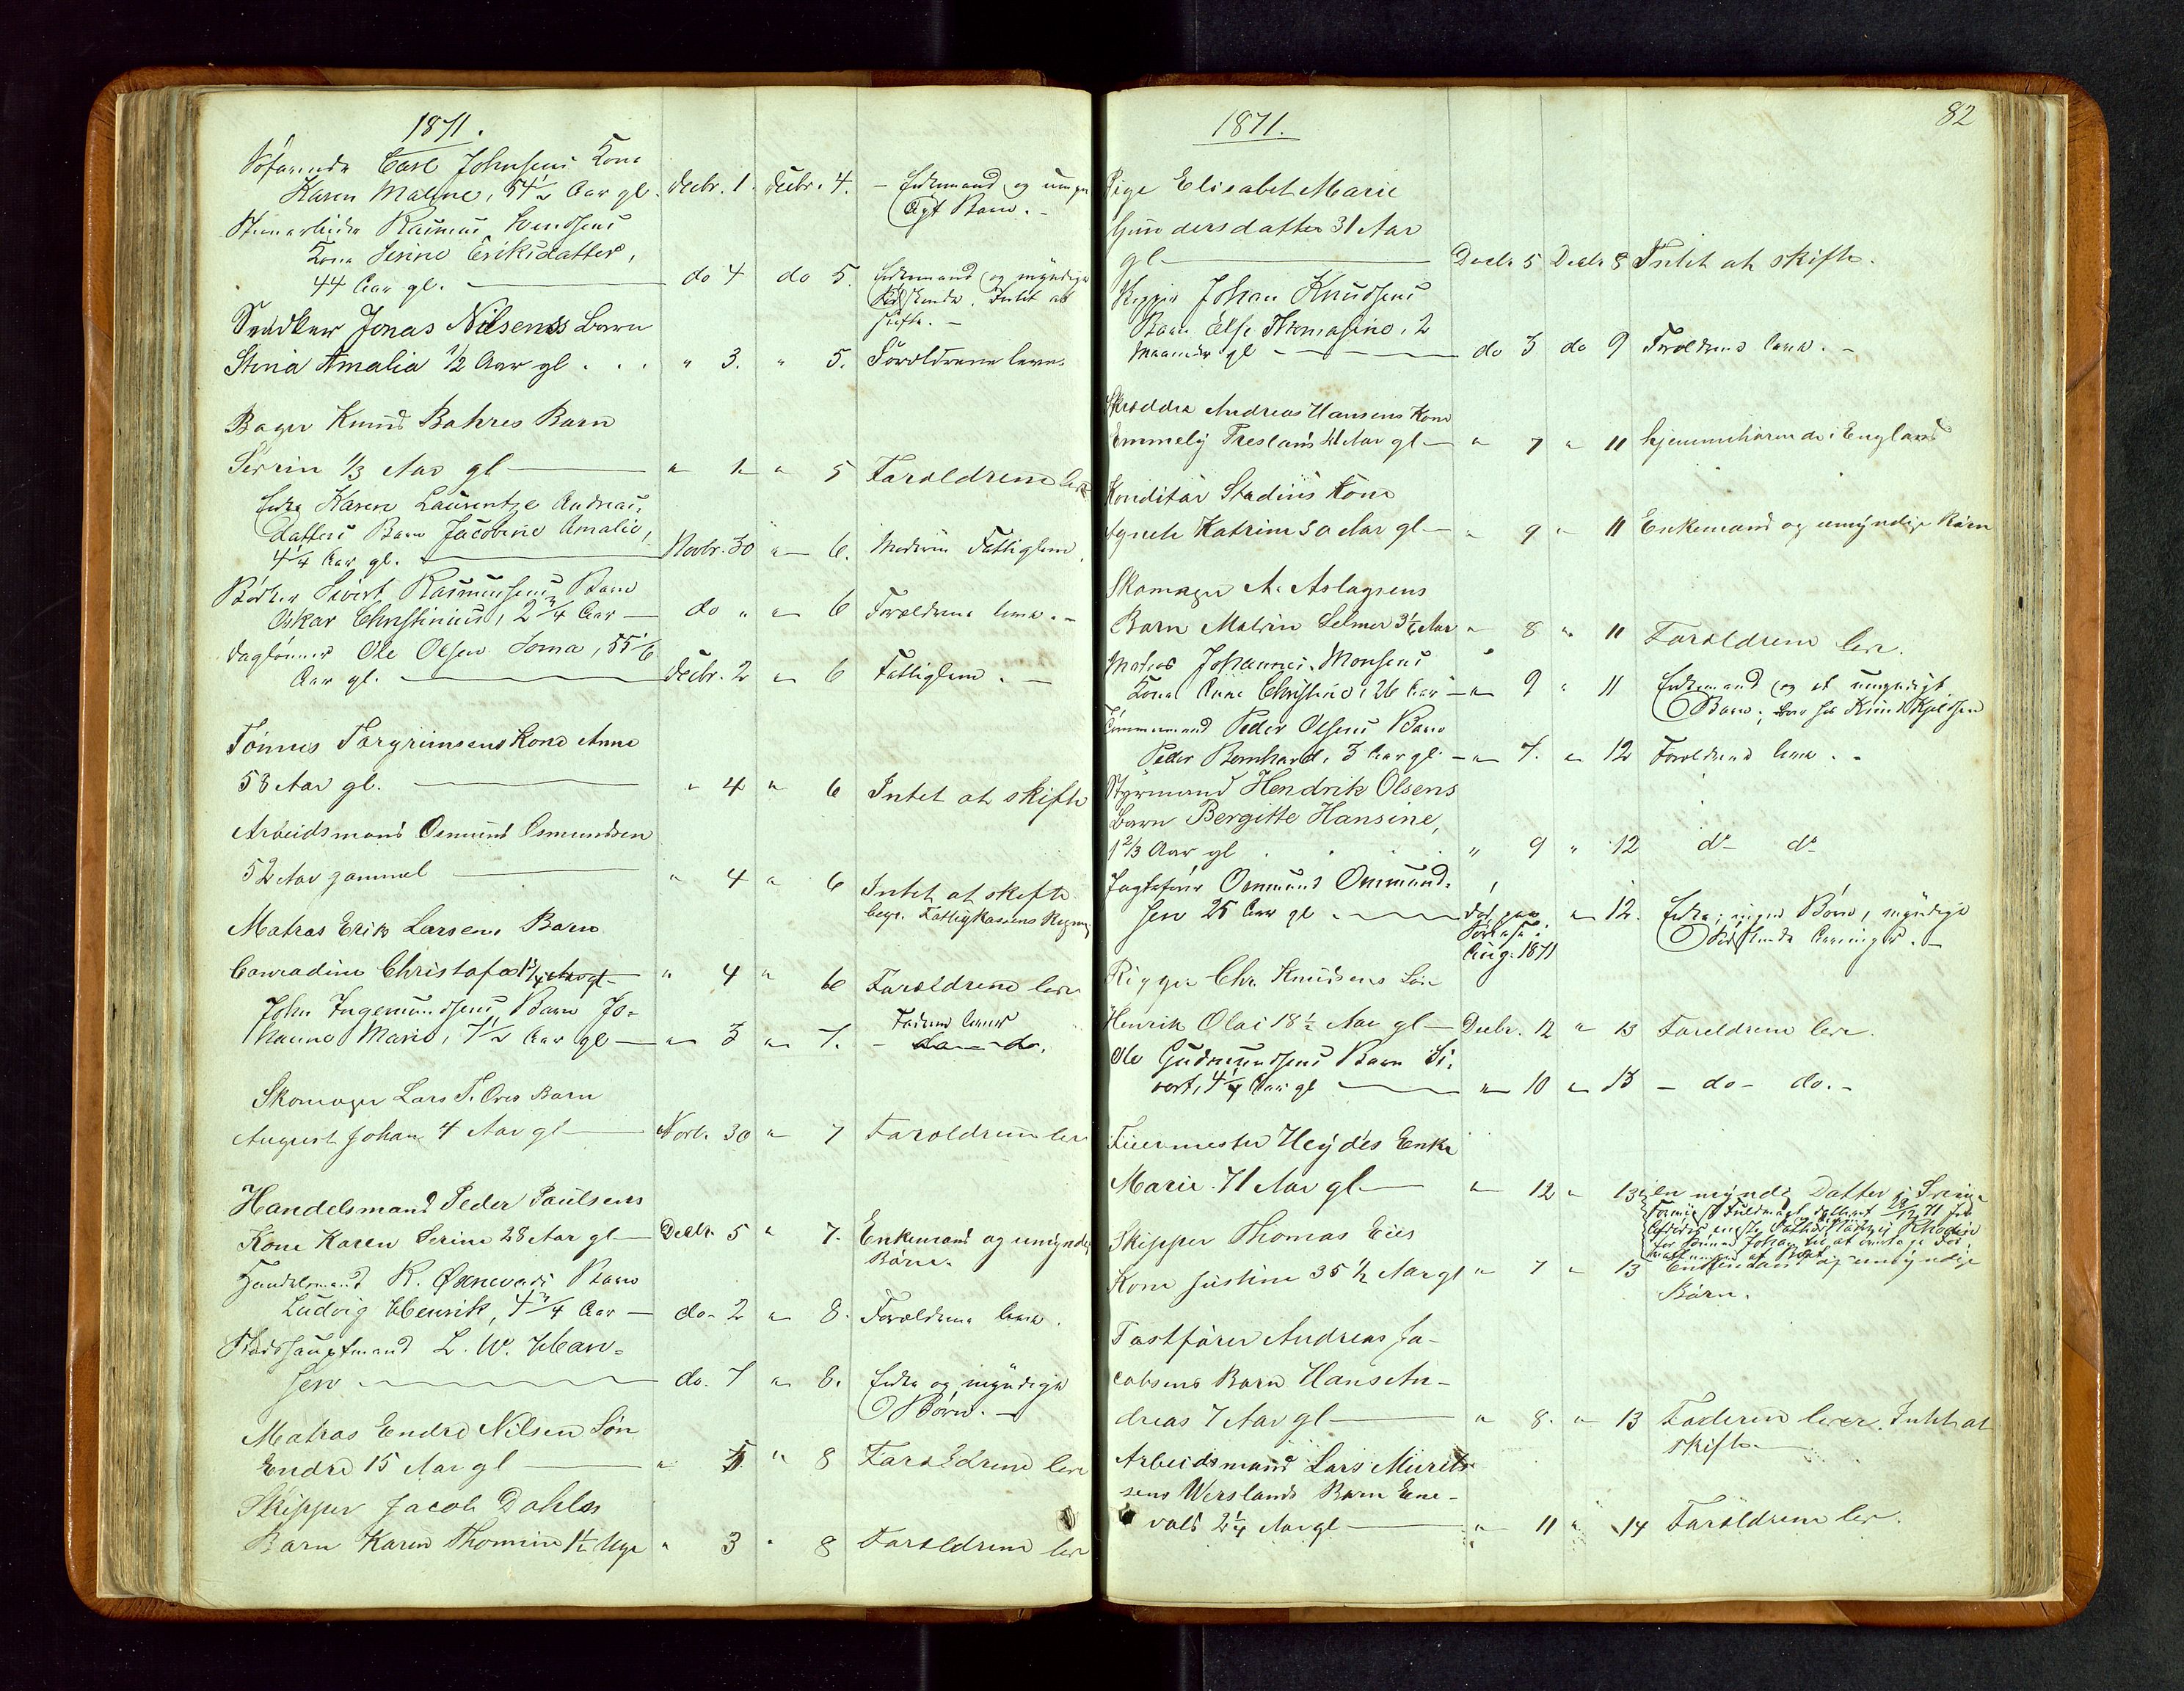 1871.
Søfarende Carl Johnsens Kone
Karen Malene, 54½ Aar gl. Decbr. 1. Decbr. 4. – Enkemand og umyn
Agt Barn. –
Steenarbeider Rasmus Svendsens
Kone Serine Eriksdatter,
44 Aar gl. do 4 do 5. Enkemand og myndige
Sødskende. Intet at
skifte. –
Snedker Jonas Nilsens Barn
Stina Amalia ½ Aar gl . . . " 3. " 5. Forældrene leve.
Bager Knud Bahres Barn
Serrin 1/3 Aar gl " 1 " 5 Forældrene leve
Enke Karen Laurentze Andreas-
datters Barn Jacobine Amalie,
4¼ Aar gl. Novbr. 30 " 6. Moderen Fattiglem.
Bødker Sivert Rasmussens Barn
Oskar Christinius, 2¾ Aar – do " " 6 Forældrene leve. –
Daglønner Ole Olsen Soma, 55 1/6
Aar gl. Decbr. 2 " 6 Fattiglem. –
Tønnes Torgrimsens Kone Anne
58 Aar gl. " 4 " 6 Intet at skifte
Arbeidsmand Osmund Osmundsen
52 Aar gammel " 4 " 6 Intet at skifte
begr. Fattigkassens Regning
Matros Erik Larsens Barn
Conradine Christofa 1¾ Aar gl – " 4 " 6 Forældrene leve
John Ingemundsens Barn Jo-
hanne Marie, 7½ Aar gl – " 3 " 7. – Faderen lever
do – do.
Skomager Lars T. Ores Barn
August Johan 4 Aar gl Novb. 30 " 7 Forældrene lever
Handelsmand Peder Paulsens
Kone Karen Serine 28 Aar gl – Decbr. 5 " 7. Enkemand og umyndige
Børn.
Handelsmand R. Øxnevads Barn
Ludvig Henrik, 4¾ Aar – do. 2 " 8. Forældrene leve.
Stadshauptmand L. W. Han-
sen do. 7 " 8. Enke og myndige
Børn. –
Matros Endre Nilsen Søn
Endre 15 Aar gl " 5 " 8 Forældrene leve
Skipper Jacob Dahls
Barn Karen Thomine 1½ Uge " 3 " 8 Forældrene leve
1871. 82
Pige Elisabet Marie
Gundersdatter 31 Aar
gl Decbr 5 Decbr 8 Intet at skifte.
Skipper Johan Knudsens
Barn Else Thomasine, 2
Maaneder gl do 3 do 9 Forældrene leve. –
Skrædder Andreas Hansens Kone
Emmely 41 Aar gl – " 7 " 11 hjemmehørende i England
Konditor Stadius Kone
Agnete Katrine 30 Aar gl – " 9 " 11 Enkemand og umyndige Børn
Skomager A. Aslagsens
Barn Malvin Selmer 3¼ Aar " 8 " 11 Forældrene leve.
Matros Johannes Monsens
Kone Anne Christine, 26 Aar – " 9 " 11 Enkemand og et umyndigt
Barn; bor hos Knud Kjeldsen
Tømmermand Peder Olsens Barn
Peder Bernhard, 3 Aar gl – " 7. " 12 Forældrene leve. –
Styrmand Hendrik Olsens
Barn Bergitte Hansine,
1 2/3 Aar gl . . . " 9 " 12 do do
Jagtefører Osmund Osmund-
sen 25 Aar gl . død paa " 12. Enke; ingen Børn, myndige
Aug. 1871 Sødskende Arvinger. –
Rigger Chr. Knudsens Søn
Henrik Olai 18½ Aar gl – Decbr. 12 " 13 Forældrene leve.
Ole Gudmundsens Barn Si-
vert, 4¼ Aar gl " 10 " 13 – do – do. –
Fuermester Heydes Enke
Marie 71 Aar gl – " 12 " 13 en myndig Datter
Skipper Thomas Eies
Kone Justine 35½ Aar gl " 7 " 13 Enkemand og umyndige
Børn.
Tostfører Andreas Ja-
cobsens Barn Hans An-
dreas 7 Aar gl " 8. " 13 Faderen lever. Intet at
skifte.
Arbeidsmand Lars Murits-
sens Werslands Barn Ene-
vald 2¼ Aar gl " 11 " 14 Forældrene lev.